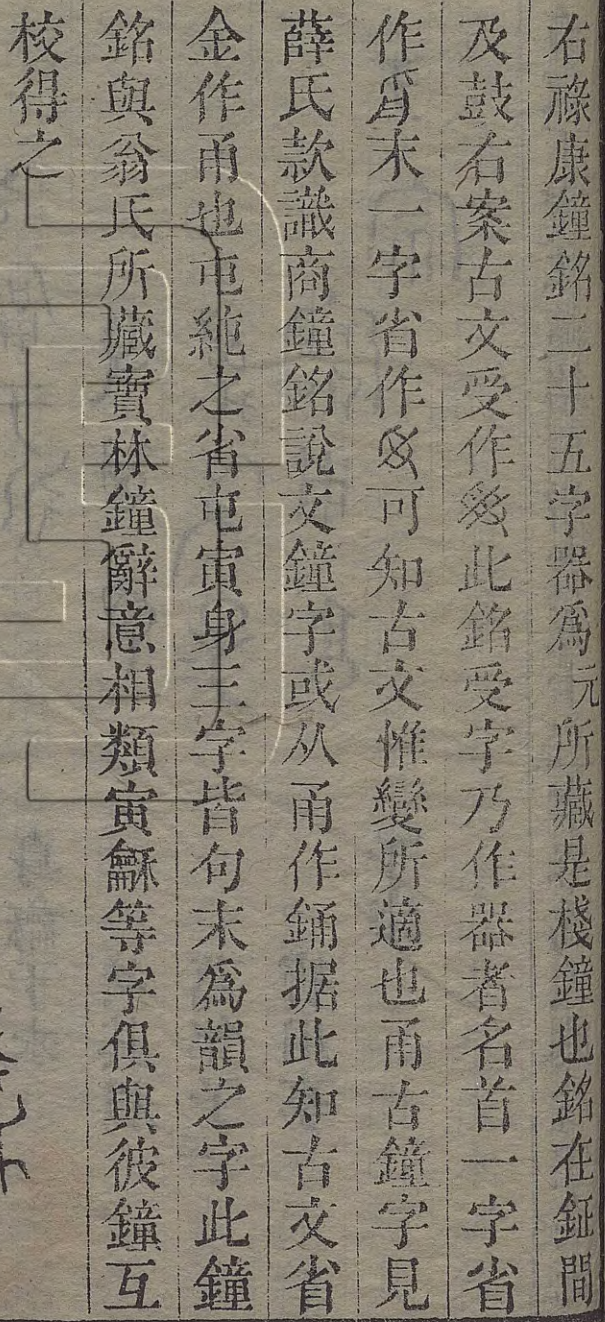 右祿康鐘銘二十五字器爲元所藏是棧鐘也銘在鉦間
及鼓右案古文受作𤔔此銘受字乃作器者名首一字省
作𤔔末一字省作𠬪可知古文惟變所適也甬古鐘字見
薛氏款識商鐘銘說文鐘字或从甬作銿据此知古文省
金作甬也屯純之省屯寅身王字皆句末爲韻之字此鐘
銘與翁氏所藏寶林鐘辭意相類寅龢等字俱與彼鐘互
校得之